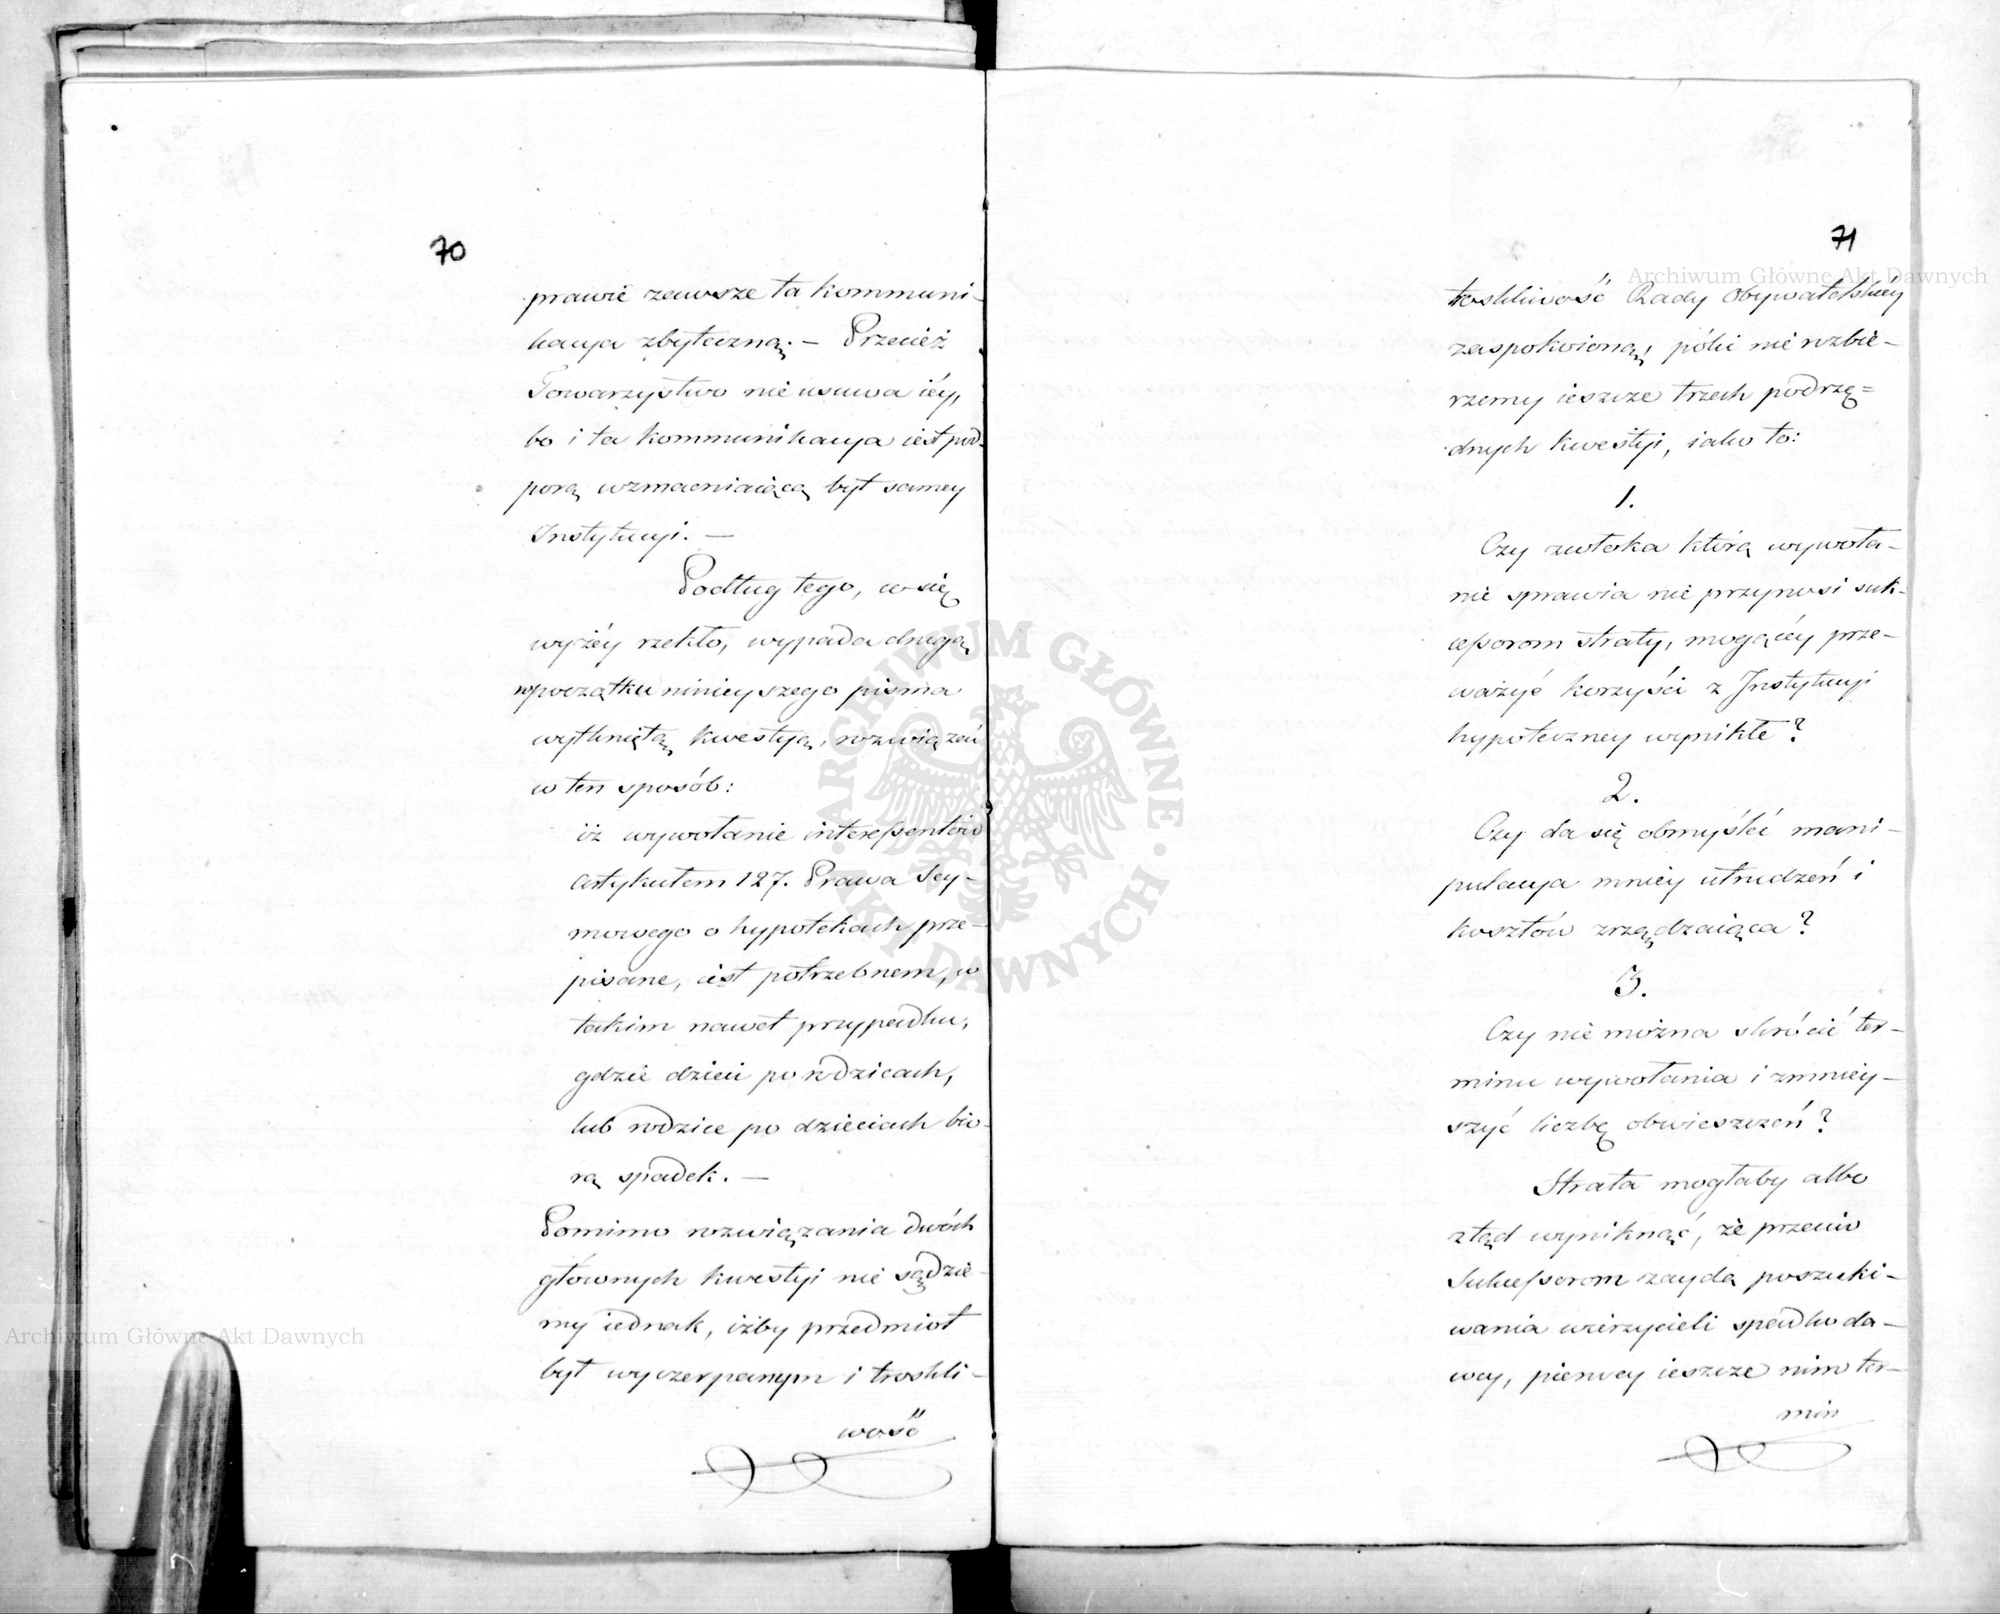 70
prawie zawsze ta kommuni-
kacya zbyteczną. — Przecież
Towarzystwo nie usuwa iéy,
bo i ta kommunikacya iest pod-
porą wzmacniaiącą byt samey
Instytucyi. —
Podług tego, co się
wyżéy rzekło, wypada drugą
w początku ninieyszego pisma
wytkniętą kwestyą, rozwiązać
w ten sposób:
iż wywołanie interessentów
artykułem 127. Prawa Sey-
mowego o hypotekach prze-
pisane, iest potrzebnem, w
takim nawet przypadku,
gdzie dzieci po rodzicach,
lub rodzice po dzieciach bio-
rą spadek. —
Pomimo rozwiązania dwóch
głównych kwestyi nie sądzie-
my iednak, iżby przedmiot
był wyczerpanym i troskli-
wość
71
troskliwość Rady Obywatelskiéy
zaspokoioną, póki nie rozbie-
rzemy ieszcze trzech podrzę=
dnych kwestyi, iako to:
1.
Czy zwłoka którą wywoła-
nie sprawia nie przynosi suk-
cessorom straty, mogącéy prze-
ważyć korzyści z Instytucyi
hypoteczney wynikłe?
2.
Czy da się obmyśleć mani-
pulacya mniéy utrudzeń i
kosztów zrządzaiąca?
3.
Czy nie można skrócić ter-
minu wywołania i zmniéy-
szyć liczbę obwieszczeń?
Strata mogłaby albo
ztąd wyniknąć, że przeciw
Sukcessorom zaydą poszuki-
wania wierzycieli spadkoda-
wcy, pierwey ieszcze nim ter-
min
Archiwum Główne Akt Dawnych
Archiwum Główne Akt Dawnych
ARCHIWUM GŁÓWNE · AKT DAWNYCH ·